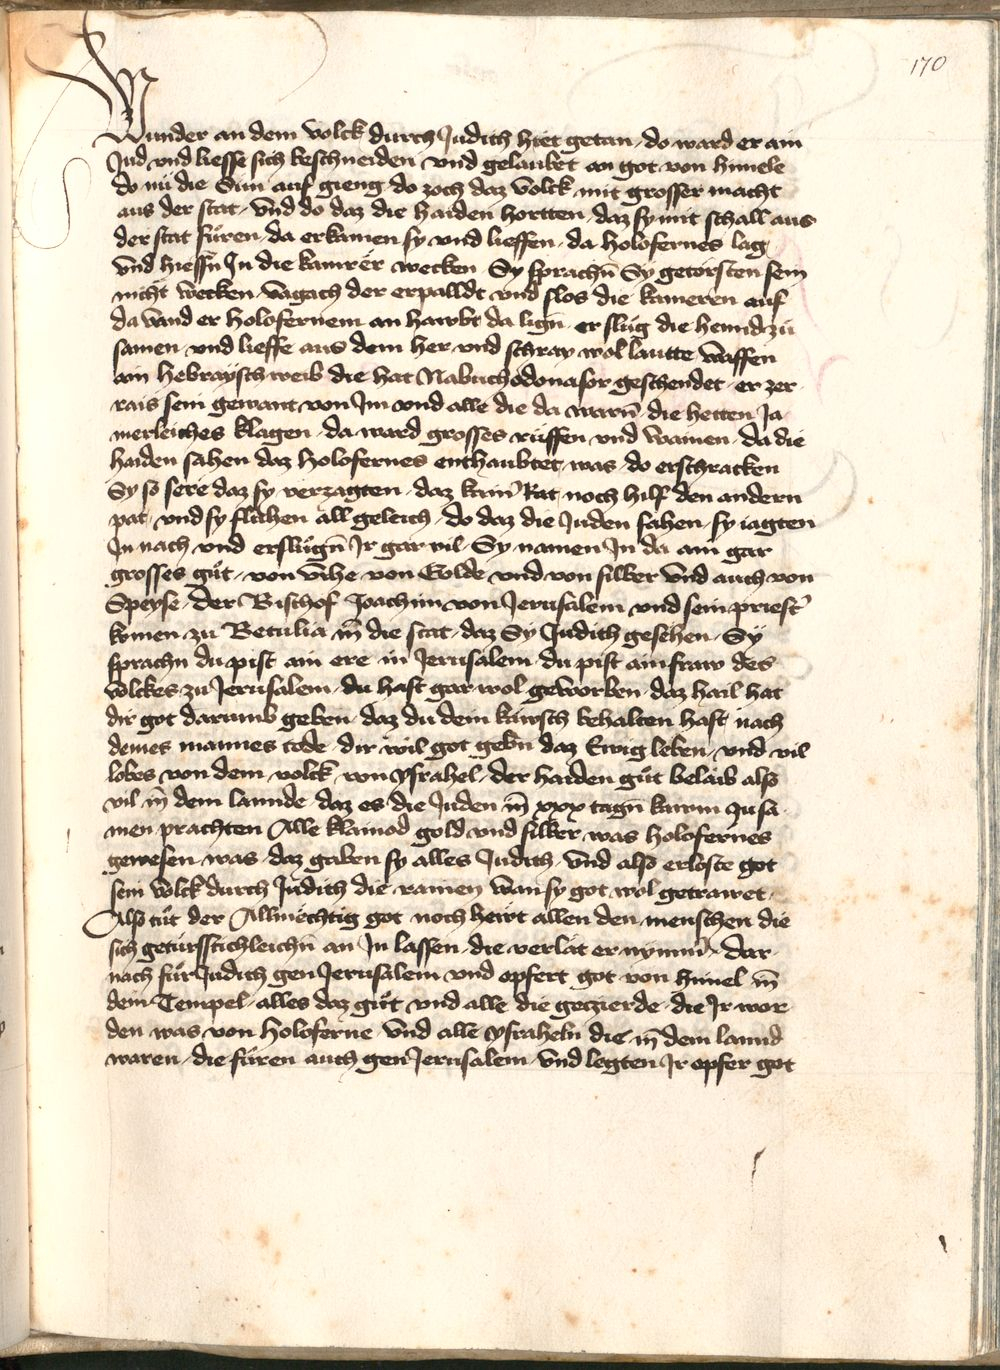 170
Wunder an dem volck durch Judith hiet getan · do ward er ain
Jud vnd liesse sich beschneiden vnd gelaubet an got von himele
do nū die Sun auf gieng do zoch daz volck mit grosser macht
aus der stat · Vnd do daz die haiden hortten · daz sy mit schall aus
der stat fůren · da erkamen sy vnd lieffen · da holofernes lag
vnd hiessn̄ Jn die kamrer wecken Sy sprachn̄ Sy getorsten sein
nicht wecken · vagach der erpalldt vnd slos die kameren auf
da vand er holofernem an hawbt da lign̄ · er slůg die hennd zů
samen · vnd lieffe aus dem her vnd schray wol lautte waffen
ain hebraÿsch weib die hat Nabuchodonasor geschendet · er zer
rais sein gewant von Jm vnd alle die da warn̄ · die hetten Ja
merleiches klagen · da ward grosses rüffen vnd wainen · da die
haiden sahen daz holofernes enthaubtet was · do erschracken
Sy so sere daz sy verzagten · daz kain' Rat noch hilf den andern
pat · vnd sy fluhen all geleich · do daz die Juden sahen · sy iagten
Jn nach vnd erslůgn̄ Jr gar vil · Sy namen Jn da ain gar
grosses gůt · von vihe von Golde vnd von silber vnd auch von
Speyse · der Bischof Joachim von Jerusalem vnd sein priest'
komen zu Betulia in̄ die stat · daz Sy Judith gesehen · Sÿ
sprachn du pist ain ere in Jerusalem · du pist ain fraw des
volckes zu Jerusalem · du hast gar wol geworben · daz hail hat
dir got darumb geben · daz du dein kawsch behalten hast nach
deines mannes tode · dir wil got gebn̄ daz Ewig leben · vnd vil
lobes von dem volck von ysrahel · der haiden gůt belaib also
vil in̄ dem lannde · daz es die Juden in̄ xxx tagn̄ kawm zu sa
men prachten Alle klainod gold vnd silber was holofernes
gewesen was · daz gaben sy alles Judith · Vnd also erloste got
sein volck durch Judith die rainen wan sy got wol getrawet ·
Also tůt der Allmechtig got noch hewt allen den menschen die
sich getürsstichleichn̄ an Jn lassen · die verlat er nym̄m' · dar
nach fůr Judith gen Jerusalem vnd opfert got von himel in̄
dem Tempel · alles daz gůt vnd alle die geczierde · die Jr wor
den was von holoferne Vnd alle ysraheln die in̄ dem lannd
waren · die fůren auch gen Jerusalem Vnd legten Jr opfer got